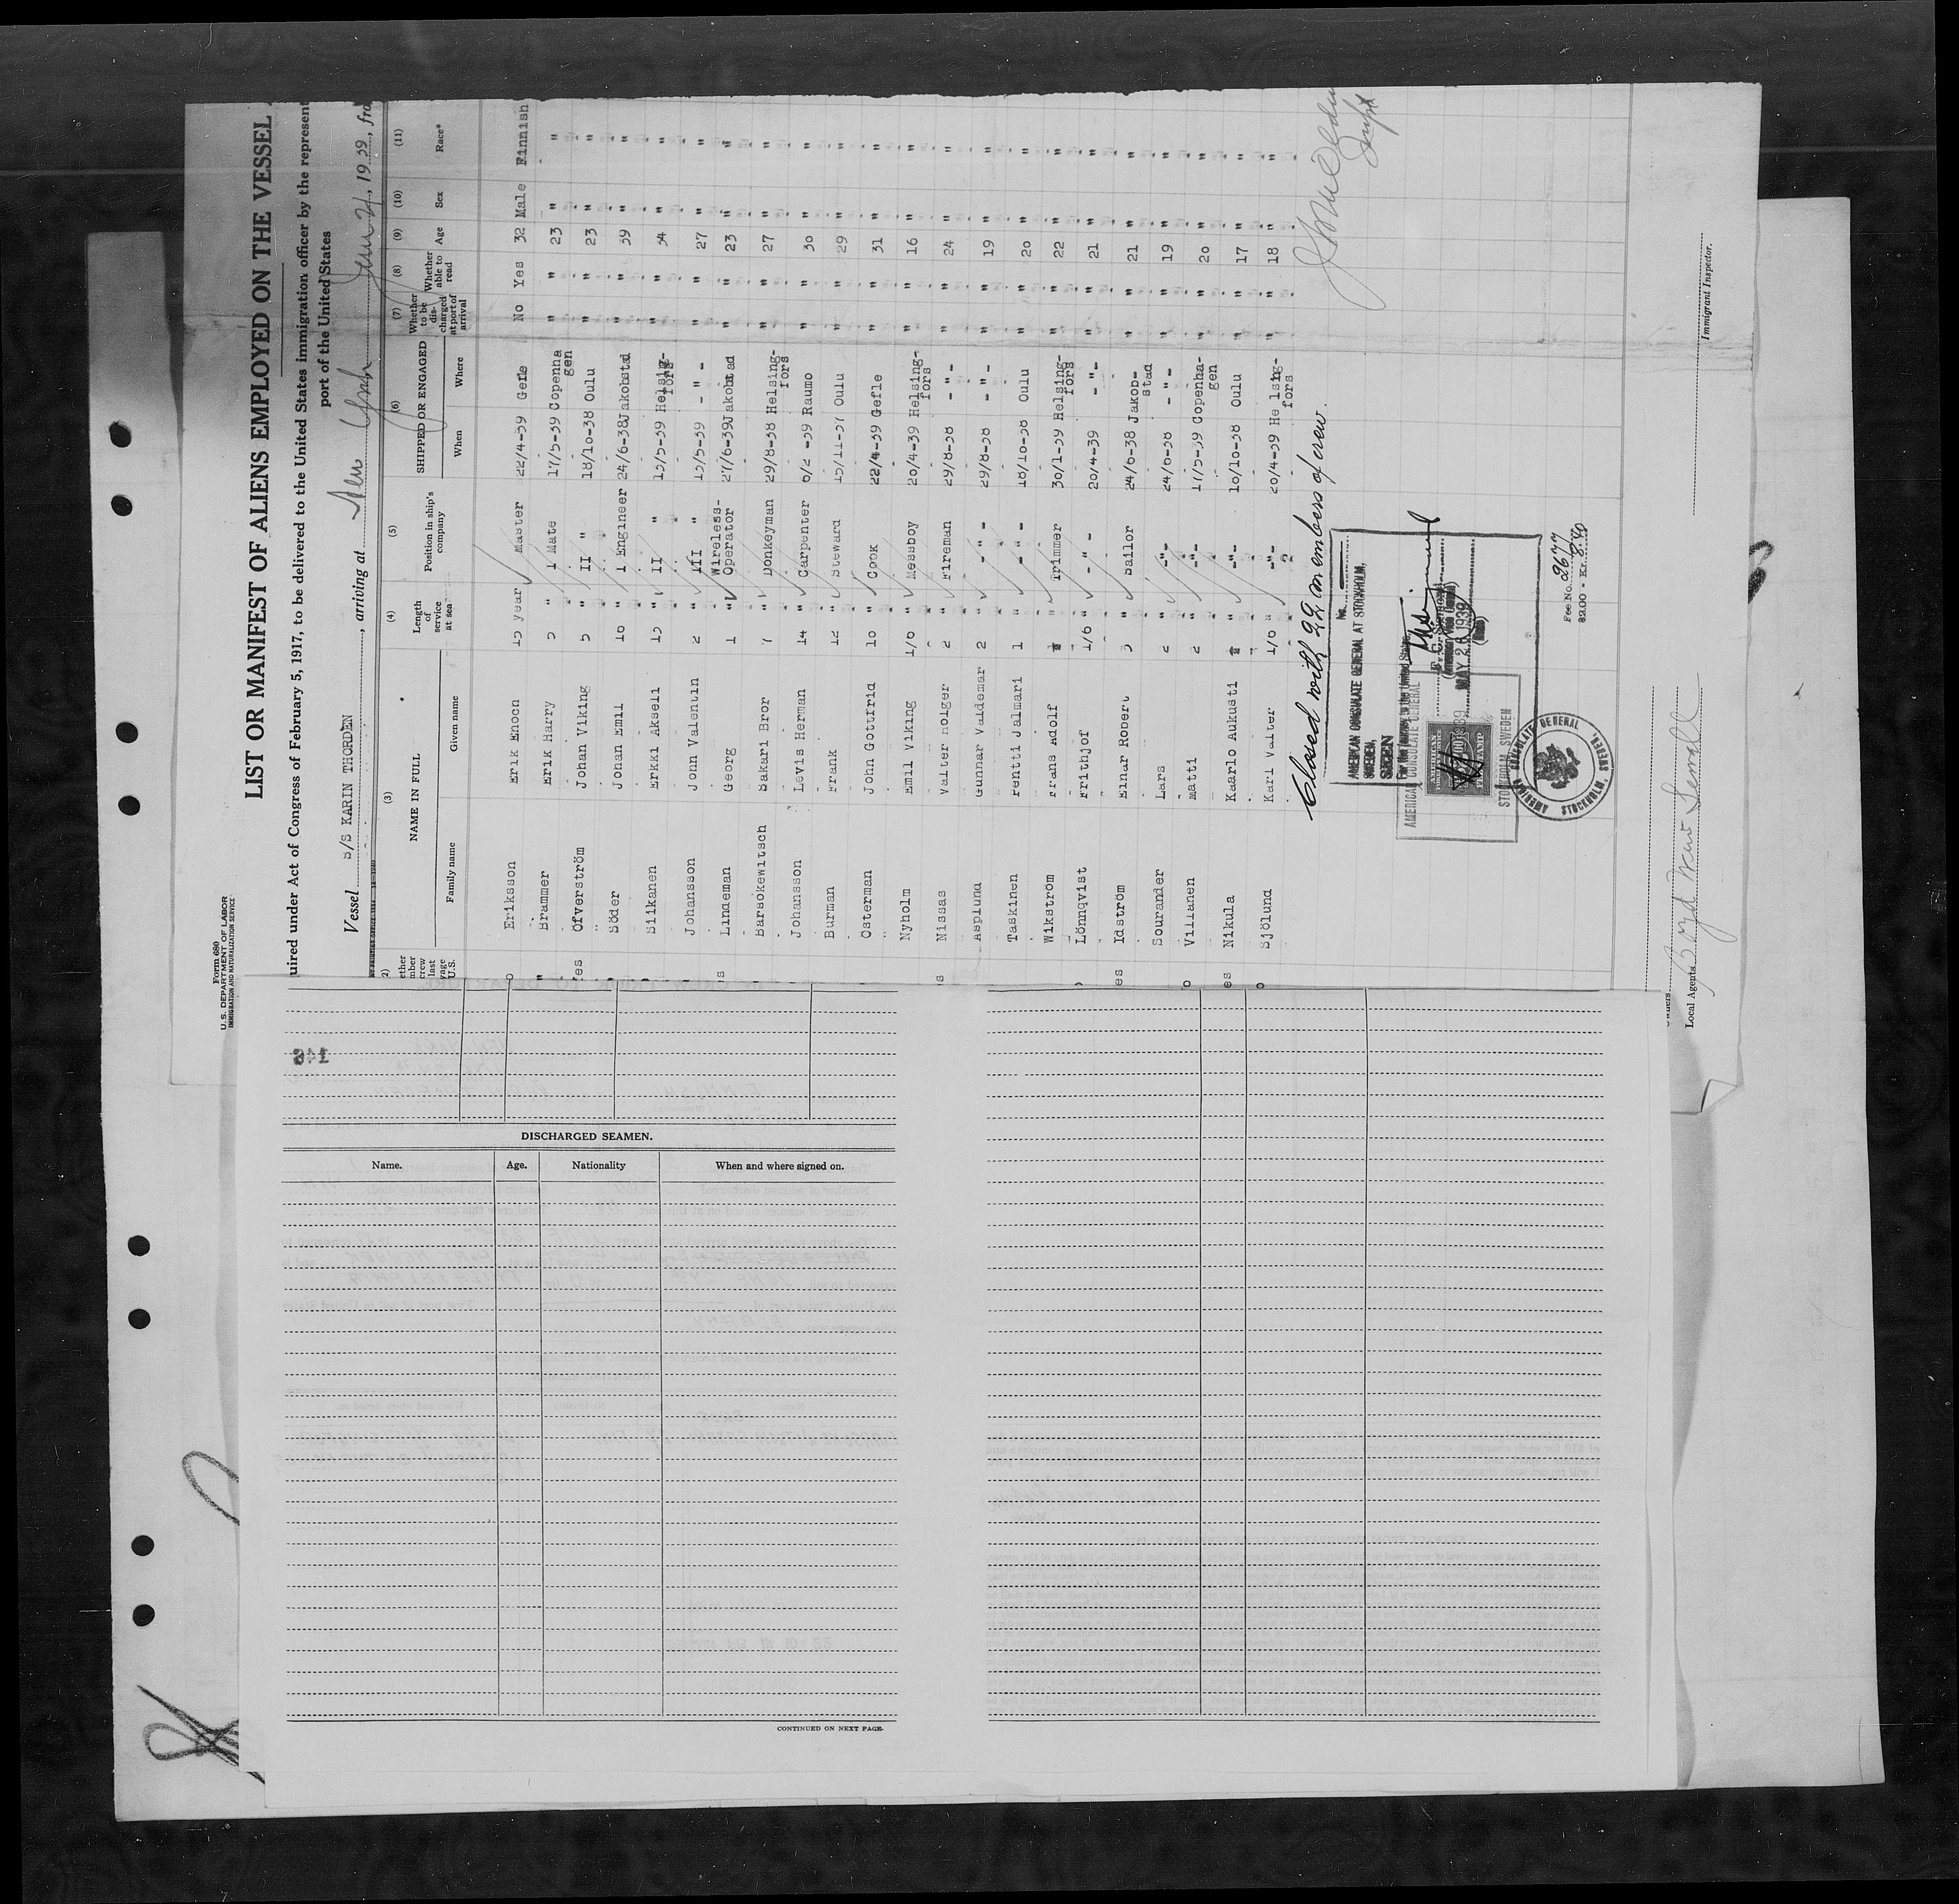 Form 680
U. S. DEPARTMENT OF LABOR
IMMIGRATION AND NATURALIZATION SERVICE
LIST OR MANIFEST OF ALIENS EMPLOYED ON THE VESSEL
uired under Act of Congress of February 5, 1917, to be delivered to the United States immigration officer by the represent
port of the United States
Vessel S/S KARIN THORDEN, arriving at New York June 21, 1939, fro
(2) (3) (4) (5) (6) (7) (8) (9) (10) (11)
ether mber crew last yage U.S. NAME IN FULL Family name Given name Length of service at sea Position in ship's company SHIPPED OR ENGAGED When Where Whether to be discharged at port of arrival Whether able to read Age Sex Race*
o Eriksson Erik Enoch 15 year Master 22/4-39 Gefle No Yes 32 Male Finnish
" Brammer Erik Harry 5 " I Mate 17/5-39 Copenhagen " " 23 " "
Yes Öfverström Johan Viking 5 " II " 18/10-38 Oulu " " 23 " "
" Söder Johan Emil 16 " I Engineer 24/6-38 Jakobstad " " 39 " "
" Siikanen Erkki Akseli 15 " II " 15/5-39 Helsingfors " " 34 " "
" Johansson John Valentin 2 " III " 15/5-39 - " - " " 27 " "
s Lindeman Georg 1 " Wireless-Operator 27/6-39 Jakobstad " " 23 " "
Barsokewitsch Sakari Bror 7 " Donkeyman 29/8-38 Helsingfors " " 27 " "
Johansson Levis Herman 14 " Carpenter 6/2 -39 Raumo " " 30 " "
Burman Frank 12 " Steward 15/11-37 Oulu " " 29 " "
Österman John Gottfrid 10 " Cook 22/4-39 Gefle " " 31 " "
Nyholm Emil Viking 1/6 " Messboy 20/4-39 Helsingfors " " 16 " "
s Nissas Valter Holger 2 " Fireman 29/8-38 - " - " " 24 " "
Asplund Gunnar Valdemar 2 " - " - 29/8-38 - " - " " 19 " "
Taskinen Pentti Jalmari 1 " - " - 18/10-38 Oulu " " 20 " "
Wikström Frans Adolf " Trimmer 30/1-39 Helsingfors " " 22 " "
Lönnqvist Frithjof 1/6 " - " - 20/4-39 - " - " " 21 " "
es Idström Einar Robert 3 " Sailor 24/6-38 Jakobstad " " 21 " "
Sourander Lars 2 " - " - 24/6-38 - " - " " 19 " "
o Villanen Matti 2 " - " - 17/5-39 Copenhagen " " 20 " "
es Nikula Kaarlo Aukusti " - " - 10/10-38 Oulu " " 17 " "
o Sjölund Karl Valter 1/6 " - " - 20/4-39 Helsingfors " " 18 " "
Closed with 22 members of crew.
No.
AMERICAN CONSULATE GENERAL AT STOCKHOLM,
SWEDEN,
SEEN
For the journey to the United States
AMERICAN CONSULATE GENERAL
(American Vice Consul)
MAY 26 1939
(Date)
STOCKHOLM, SWEDEN
AMERICAN CONSULATE GENERAL
STOCKHOLM, SWEDEN.
Fee No. 2677
$2.00 - Kr. 8.40
Immigrant Inspector.
Owners
Local Agents Boyd
148
DISCHARGED SEAMEN.
Name. Age. Nationality When and where signed on.
CONTINUED ON NEXT PAGE.